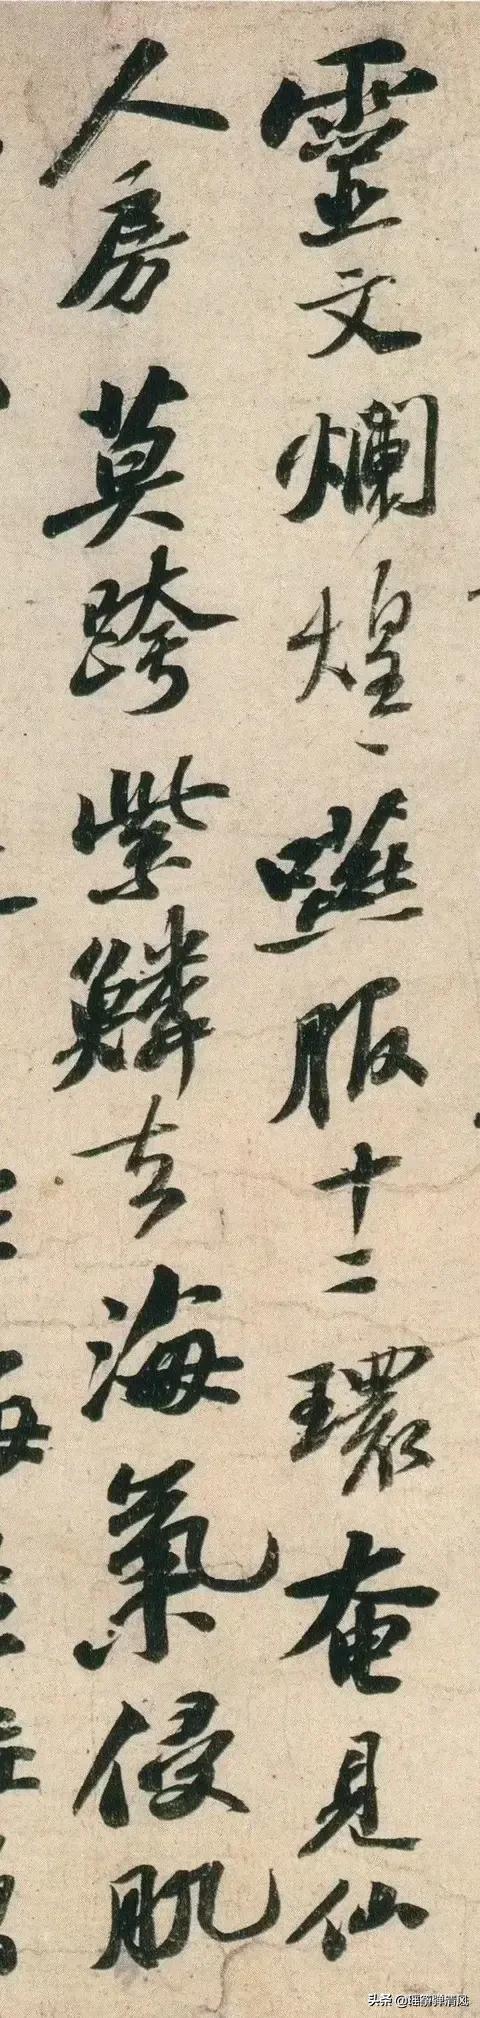 靈文爛煌煌嚥服十二環奄見仙
人房莫跨紫鱗去海氣侵肌
头条 @瑶琴弹清风